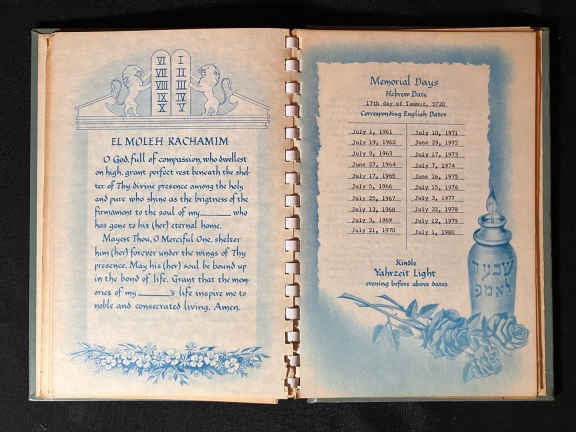 VI I
VII II
VIII III
IX IV
X V
EL MOLEH RACHAMIM
O God, full of compassion, who dwellest
on high, grant perfect rest beneath the shel-
ter of Thy divine presence among the holy
and pure who shine as the brigtness of the
firmament to the soul of my______ who
has gone to his (her) eternal home.
Mayest Thou, O Merciful One, shelter
him (her) forever under the wings of Thy
presence. May his (her) soul be bound up
in the bond of life. Grant that the mem-
ories of my ______'s life inspire me to
noble and consecrated living. Amen.
Memorial Days
Hebrew Date
17th day of Tammuz, 5720
Corresponding English Dates
July 1, 1961 July 10, 1971
July 19, 1962 June 29, 1972
July 9, 1963 July 17, 1973
June 27, 1964 July 7, 1974
July 17, 1965 June 26, 1975
July 5, 1966 July 15, 1976
July 25, 1967 July 3, 1977
July 13, 1968 July 22, 1978
July 3, 1969 July 12, 1979
July 21, 1970 July 1, 1980
Kindle
Yahrzeit Light
evening before above dates
לאמפ